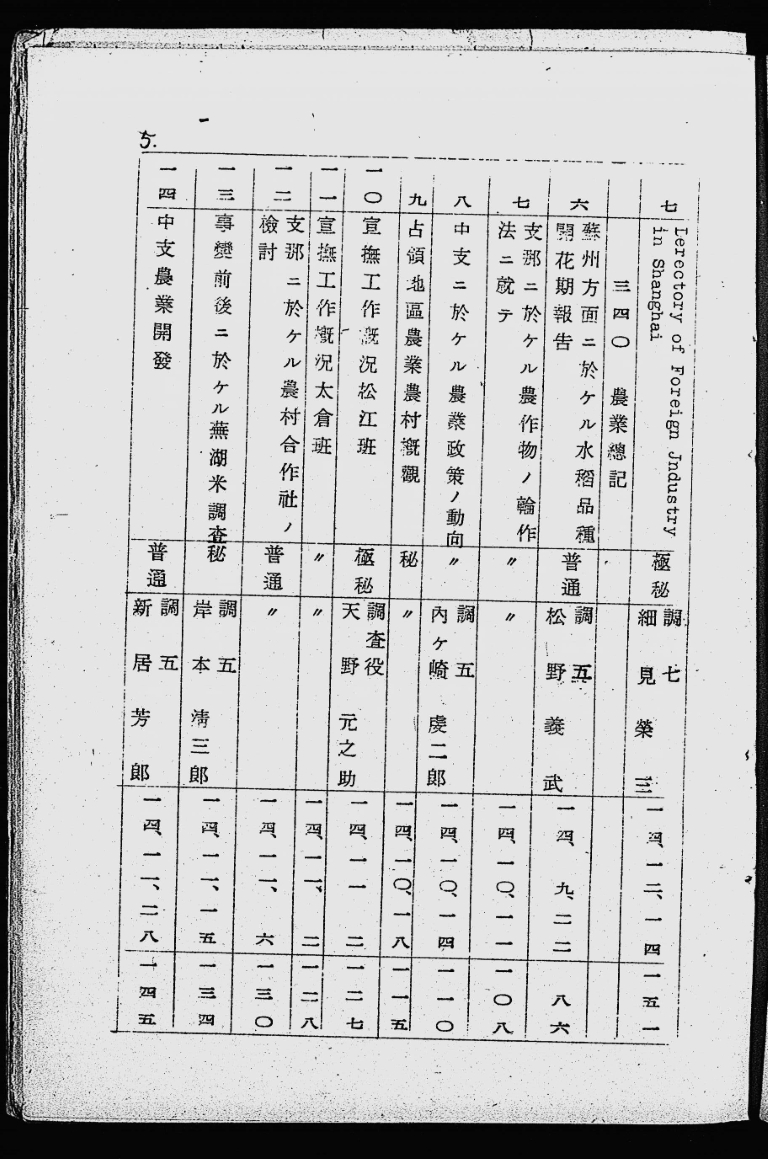 5.
七
Lerectory of Foreign Jndustry
in Shanghai
極秘
調七
細見榮三
一四、一二、一四
一五一
三四〇 農業總記
六
蘇州方面ニ於ケル水稻品種
開花期報告
普通
調五
松野義武
一四、九、二二
八六
七
支那ニ於ケル農作物ノ輪作
法ニ就テ
〃
〃
一四、一〇、一一
一〇八
八
中支ニ於ケル農業政策ノ動向
〃
調五
內ケ崎虔二郎
一四、一〇、一四
一一〇
九
占領地區農業農村槪觀
秘
〃
一四、一〇、一八
一一五
一〇
宣撫工作槪況松江班
極秘
調査役
天野元之助
一四、一一 二
一二七
一一
宣撫工作槪況太倉班
〃
〃
一四、一一、二
一二八
一二
支那ニ於ケル農村合作社ノ
檢討
普通
〃
一四、一一、六
一三〇
一三
事變前後ニ於ケル蕪湖米調査
秘
調五
岸本淸三郎
一四、一一、一五
一三四
一四
中支農業開發
普通
調五
新居芳郎
一四、一一、二八
一四五